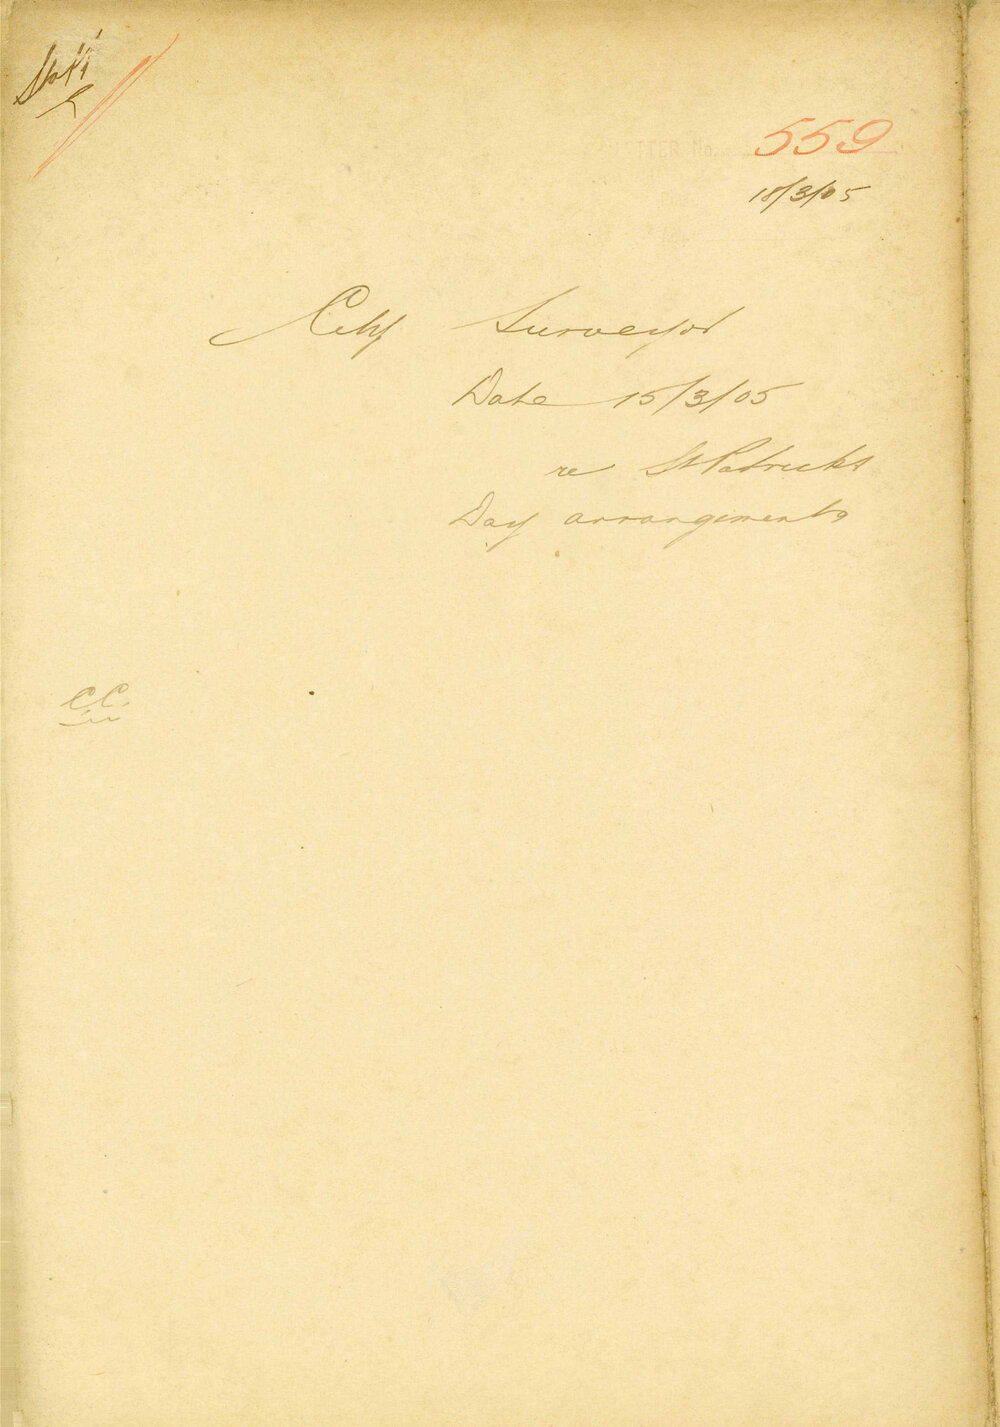 LETTER No. 559
18/3/05
City Surveyor
Date 15/3/05
re St Patricks
Day arrangements
C.C.